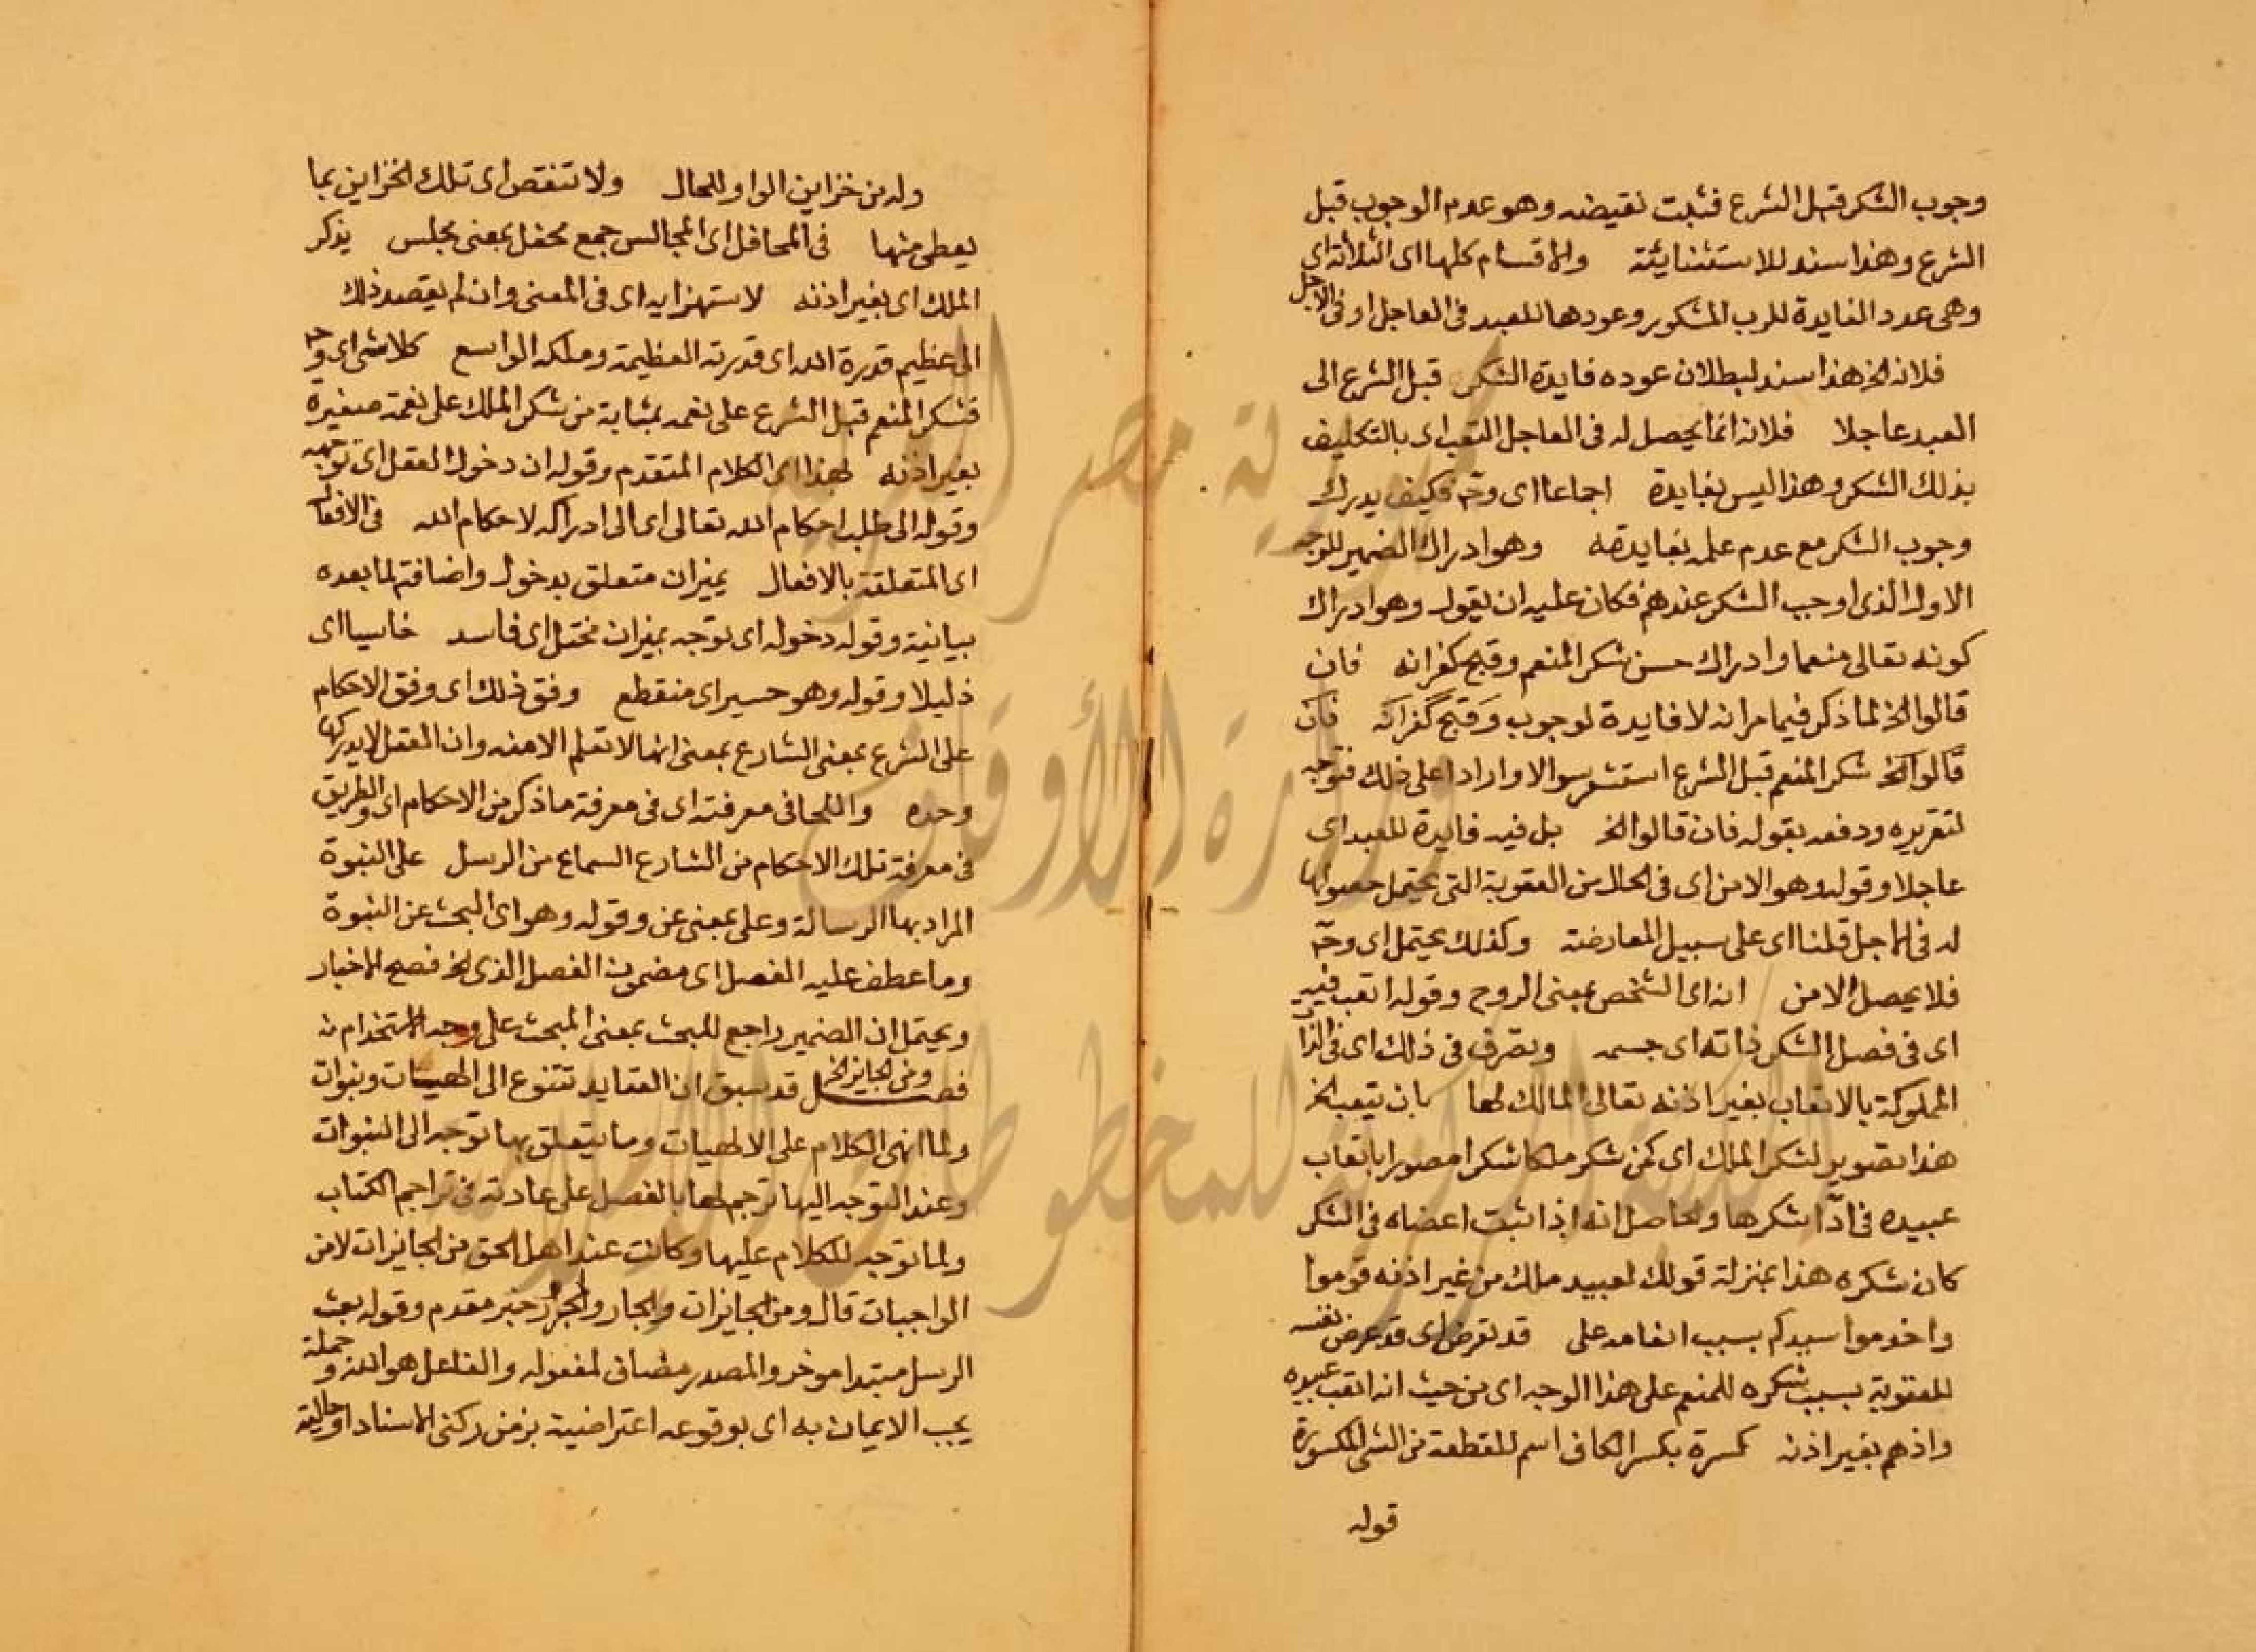 وجوب الشكر قبل الشرع فثبت نقيضه وهو عدم الوجوب قبل
الشرع وهذا سند للاستثنائية والاقسام كلها اى الثلاثة اى
وهى عدد الفايدة للرب المشكور وعودها للعبد فى العاجل او فى الاجل
فلانه الخ هذا سند لبطلان عوده فايدة الشكر قبل الشرع الى
العبد عاجلا فلانه انما يحصل له فى العاجل التعب اى بالتكليف
بذلك الشكر وهذا ليس بفايدة اجماعا اى وح فكيف يدرك
وجوب الشكر مع عدم علمه بفايدته وهو ادراك الضمير للوجه
الاول الذى اوجب الشكر عندهم فكان عليه ان يقول وهو ادراك
كونه تعالى منعما وادراك حسن شكر المنعم وقبح كفرانه فان
قالوا الخ لما ذكر فيما مر انه لا فايدة لوجوب وقبح كفرانه فان
قالوا الخ شكر المنعم قبل الشرع استشعر سوالا وارادا على ذلك فتوجه
لتقريره ودفعه بقوله فان قالوا الخ بل فيه فايدة للعبد اى
عاجلا وقوله وهو الامن اى فى الحال من العقوبة التى يحتمل حصولها
له فى الاجل قلنا اى على سبيل المعارضة وكذلك يحتمل اى وح
فلا يحصل الامن انه اى الشخص بمعنى الروح وقوله اتعب فيه
اى فى فصل الشكر ذاته اى جسمه وتصرف فى ذلك اى فى الذات
المملوكة بالاتعاب بغير اذنه تعالى المالك لها بان يتعب الخ
هذا تصوير لشكر الملك اى كمن شكر ملكا شكرا مصورا باتعاب
عبيده فى ادآ شكرها والحاصل انه اذا اتعب اعضاه فى الشكر
كان شكره هذا بمنزلة قولك لعبيد ملك من غير اذنه قوموا
واخدموا سيدكم بسبب انعامه على قد تعرض اى قد عرض نفسه
للعقوبة بسبب شكره للمنعم على هذا الوجه اى من حيث انه اتعب عبيده
واذهم بغير اذن كسرة بكسر الكاف اسم للقطعة من الشى المكسورة
قوله
وله من خزاين الواو للحال ولا تنقص اى تلك الخزاين بما
يعطى منها فى المحافل اى المجالس جمع محفل بمعنى مجلس يذكر
الملك اى بغير اذنه لاستهزايه اى فى المعنى وان لم يقصد ذلك
الى عظيم قدرة الله اى قدرته العظيمة وملكه الواسع كلاشى اى وح
فشكر المنعم قبل الشرع على نعمه بمثابة من شكر الملك على نعمة صغيرة
بغير اذنه لهذا اى الكلام المتقدم وقوله ان دخول العقل اى توجهه
وقوله الى طلب احكام الله تعالى اى الى ادراكه لاحكام الله فى الافعال
اى المتعلقة بالافعال بميزان متعلق بدخول واضافته لما بعده
بيانية وقوله دخوله اى توجه بميزان مختل اى فاسد خاسيا اى
ذليلا وقوله وهو حسير اى منقطع وفق ذلك اى وفق الاحكام
على الشرع بمعنى الشارع بمعنى انها لا تعلم الا منه وان العقل لا يدركها
وحده واللجا فى معرفته اى فى معرفة ما ذكر من الاحكام اى والطريق
فى معرفة تلك الاحكام من الشارع السماع من الرسل على النبوة
المراد بها الرسالة وعلى بمعنى عن وقوله وهو اى البحث عن النبوة
وما عطف عليه الفصل اى مضمون الفصل الذى الخ فصح الاخبار
ويحتمل ان الضمير راجع للبحث بمعنى المبحث على وجه الاستخدام
فصل ومن الجايز الخ قد سبق ان العقايد تتنوع الى الهيات ونبوات
ولما انهى الكلام على الالهيات وما يتعلق بها توجه الى النبوات
وعند التوجه اليها ترجم لها بالفصل على عادته فى تراجم الكتاب
ولما توجه للكلام عليها وكانت عند اهل الحق من الجايزات لا من
الواجبات قال ومن الجايزات والجار والمجرور خبر مقدم وقوله بعث
الرسل مبتدا موخر والمصدر مضاف لمفعوله والفاعل هو الله وجملة
يجب الايمان به اى بوقوعه اعتراضية بين ركنى الاسناد او حالية